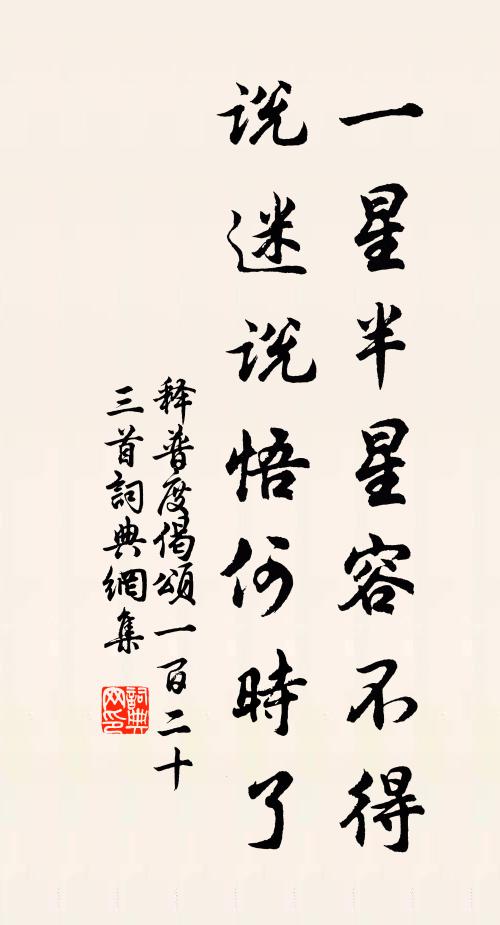 一星半星容不得
说迷说悟何時了
释普度偈頌一百二十
三首詞典網集
詞典网印